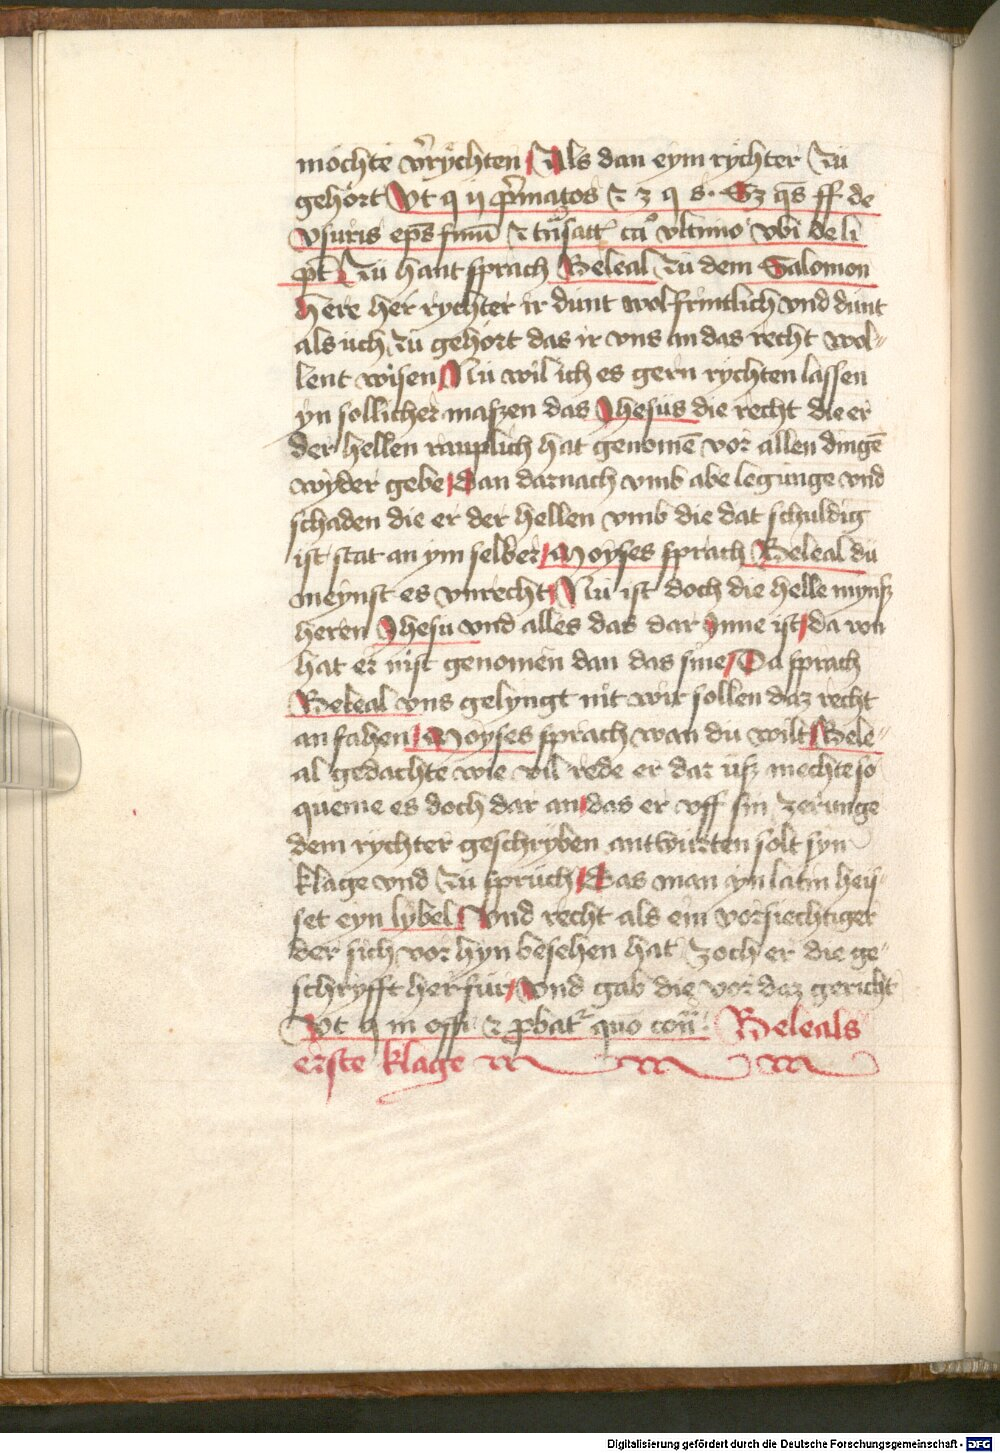 mochte v̄rychten Als dan eym rychter zu
gehort Vt q ij p̄matos ⁊ 3 q s. Sz q̄s ff de
vsuris ep̄s funū ⁊ tūsatt cao vltimo vbi de li
p̄t zu hant sprach Beleal zu dem Salomon
here her rychter ir dunt wol frintlich vnd dunt
als uch zu gehort das ir vns an das recht wol-
lent wisen Nu wil ich es gern rychten lassen
yn sollicher maszen das Jhesus die recht die er
der hellen rauplich hat genomē vor allen dingē
wyder gebe Dan darnach vmb abe legunge vnd
schaden die er der hellen vmb die dat schuldig
ist stat an ym selber Moyses sprach Beleal du
meynst es vnrecht Nu ist doch die helle mynsz
heren Jhesu vnd alles das dar Jnne ist da von
hat er nist genomen dan das sine Da sprach
Beleal vns gelyngt nit wir sollen daz recht
an fahen Moyses sprach wan du wilt Bele-
al gedachte wie vil rede er dar usz mechte so
queme es doch dar an das er vff sin zerunge
dem rychter geschryben antwurten solt syn
klage vnd zu spruch Das man yn latin hey-
set eyn lybel Vnd recht als ein vorsiechtiger
der sich vor hyn besehen hat zoch er die ge-
schryfft herfur Vnd gab die vor daz gericht
Vt q in offi ⁊ p̱bat quo cou. Beleals
erste klage
Digitalisierung gefördert durch die Deutsche Forschungsgemeinschaft - DFG